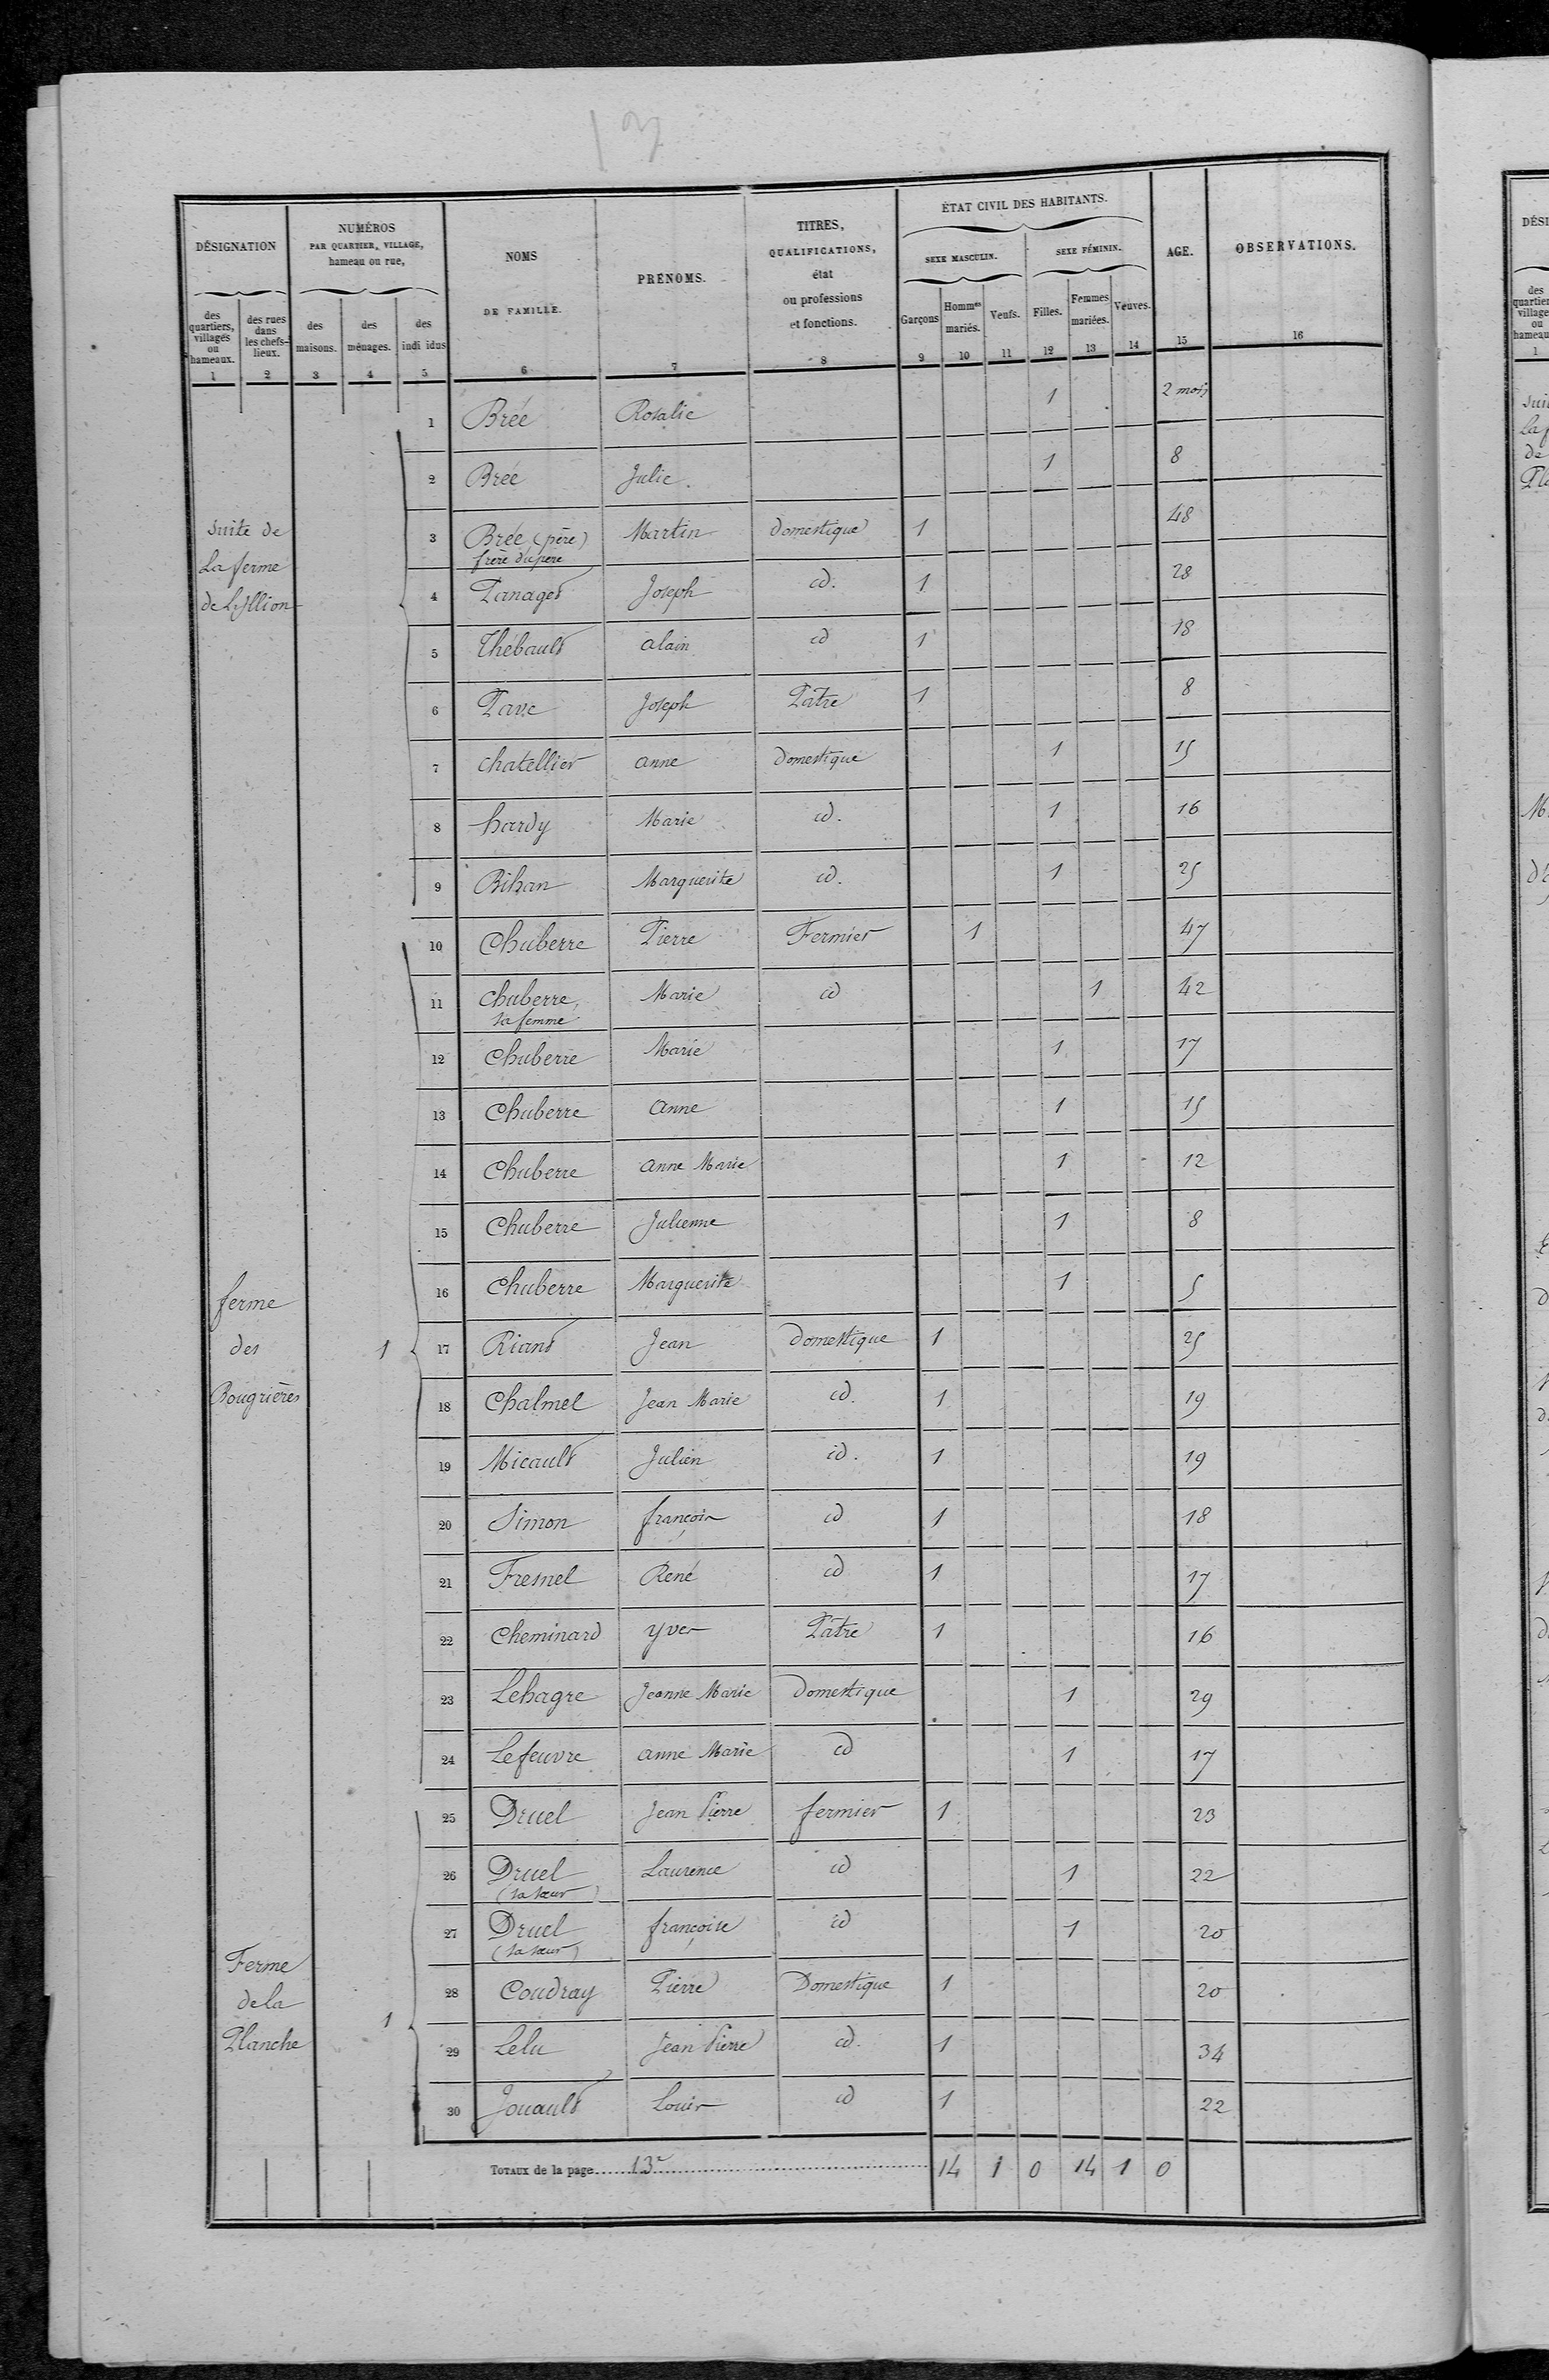 13
DÉSIGNATION
NUMÉROS
PAR QUARTIER, VILLAGE,
hameau ou rue,
NOMS
DE FAMILLE.
PRÉNOMS.
TITRES,
QUALIFICATIONS,
état
ou professions
et fonctions.
ÉTAT CIVIL DES HABITANTS.
SEXE MASCULIN.
SEXE FÉMININ.
AGE.
OBSERVATIONS.
des quartiers, villages ou hameaux.
des rues dans les chefs-lieux.
des maisons.
des ménages.
des indi idus
Garçons
Hommes mariés.
Veufs.
Filles.
Femmes mariées.
Veuves.
1 2 3 4 5 6 7 8 9 10 11 12 13 14 15 16
1 Brée Rosalie 1 2 mois
2 Brée Julie. 1 8
suite de
La ferme
3 Brée (père) Martin domestique 1 48
frère du père
4 Panaget Joseph id. 1 28
5 Thébault alain id 1 18
6 Pavé Joseph Pâtre 1 8
7 chatellier anne domestique 1 15
8 hardy Marie id. 1 16
9 Bihan Marguerite id. 1 25
10 Chuberre Pierre Fermier 1 47
11 Chuberre, Marie id 1 42
sa femme
12 Chuberre Marie 1 17
13 Chuberre Anne 1 15
14 Chuberre anne Marie 1 12
15 Chuberre Julienne 1 8
16 Chuberre Marguerite 1 5
ferme
des
Bougrières
1
17 Riand Jean Domestique 1 25
18 Chalmel Jean Marie id. 1 19
19 Micault Julien id. 1 19
20 Simon françois id 1 18
21 Fresnel René id 1 17
22 Cheminard yves Pâtre 1 16
23 Lehagre Jeanne Marie Domestique 1 29
24 Lefeuvre anne Marie id 1 17
25 Druel Jean Pierre fermier 1 23
26 Druel Laurence id 1 22
(sa sœur)
27 Druel françoise id 1 20
(sa sœur)
Ferme
de la
Planche
1
28 Coudray Pierre Domestique 1 20
29 Lelu Jean Pierre id. 1 34
30 Jouault Louis id 1 22
TOTAUX de la page 13e 14 1 0 14 1 0